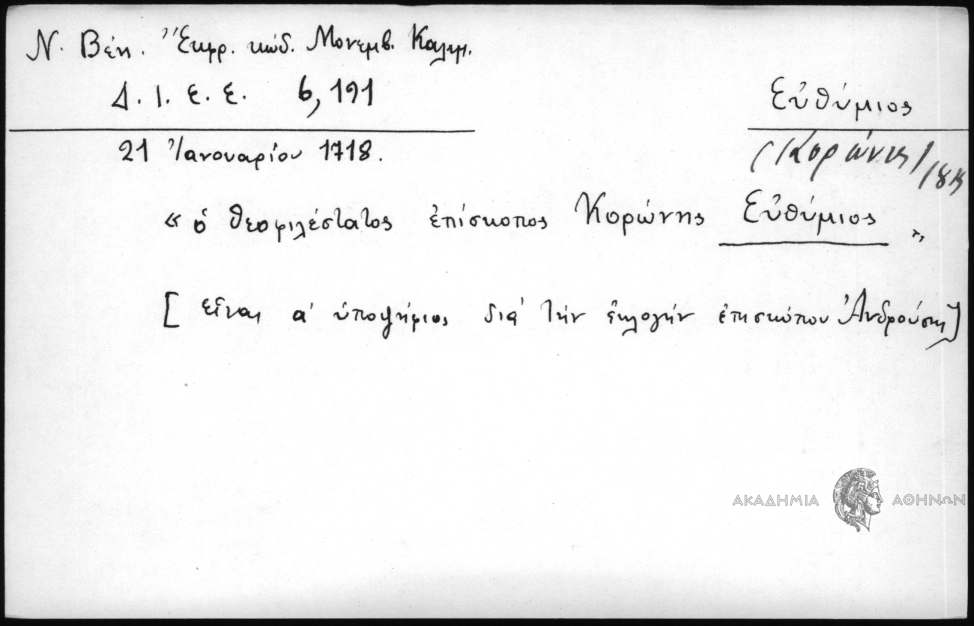 Ν. Βέη. Ἔκφρ. κώδ. Μονεμβ. Καλαμ.
Δ. Ι. Ε. Ε. 6, 191
Εὐθύμιος
21 Ἰανουαρίου 1718.
(Κορώνης)
« ὁ θεοφιλέστατος ἐπίσκοπος Κορώνης Εὐθύμιος »
[εἶναι α' ὑποψήφιος διὰ τὴν ἐκλογὴν ἐπισκόπου Ἀνδρούσης]
ΑΚΑΔΗΜΙΑ ΑΘΗΝΩΝ